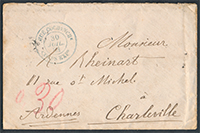 30
Monsieur
Rheinart
11 rue St Michel
30
Charleville
Ardennes